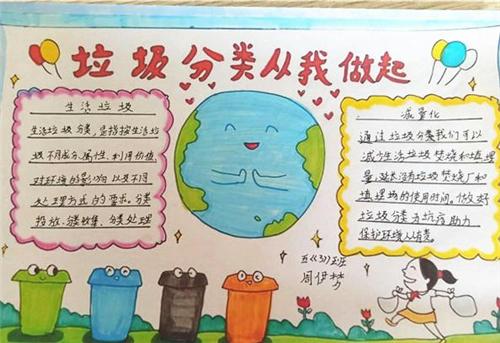 垃圾分类从我做起
生活垃圾
生活垃圾分类,是指按生活垃
圾不同成分、属性、利用价值、
对环境的影响以及不同
处理方式的要求,分类
投放、分类收集、分类处理
减量化
通过垃圾分类我们可以
减少生活垃圾焚烧和填埋
量,延长活垃圾焚烧厂和
填埋场的使用时间。做好
垃圾分类为抗疫助力
保护环境人人有责。
五(3)班
周伊梦